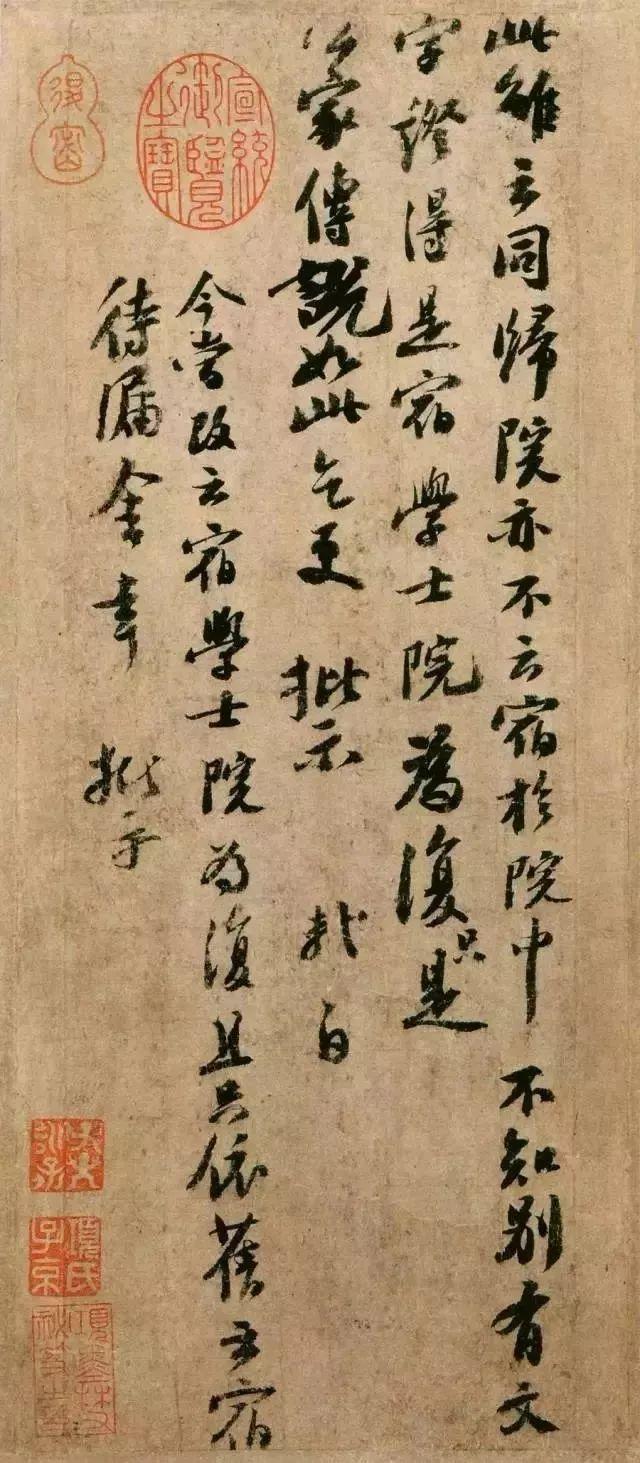 此雖云同歸院亦不云宿於院中 不知別有文
字證得是宿學士院為復只是
公家傳說如此乞更 批示 軾白
今當改云宿學士院為復且只依舊云宿
待漏舍幸 批示
宣統御覽之寶
項氏子京
項墨林父祕笈之印